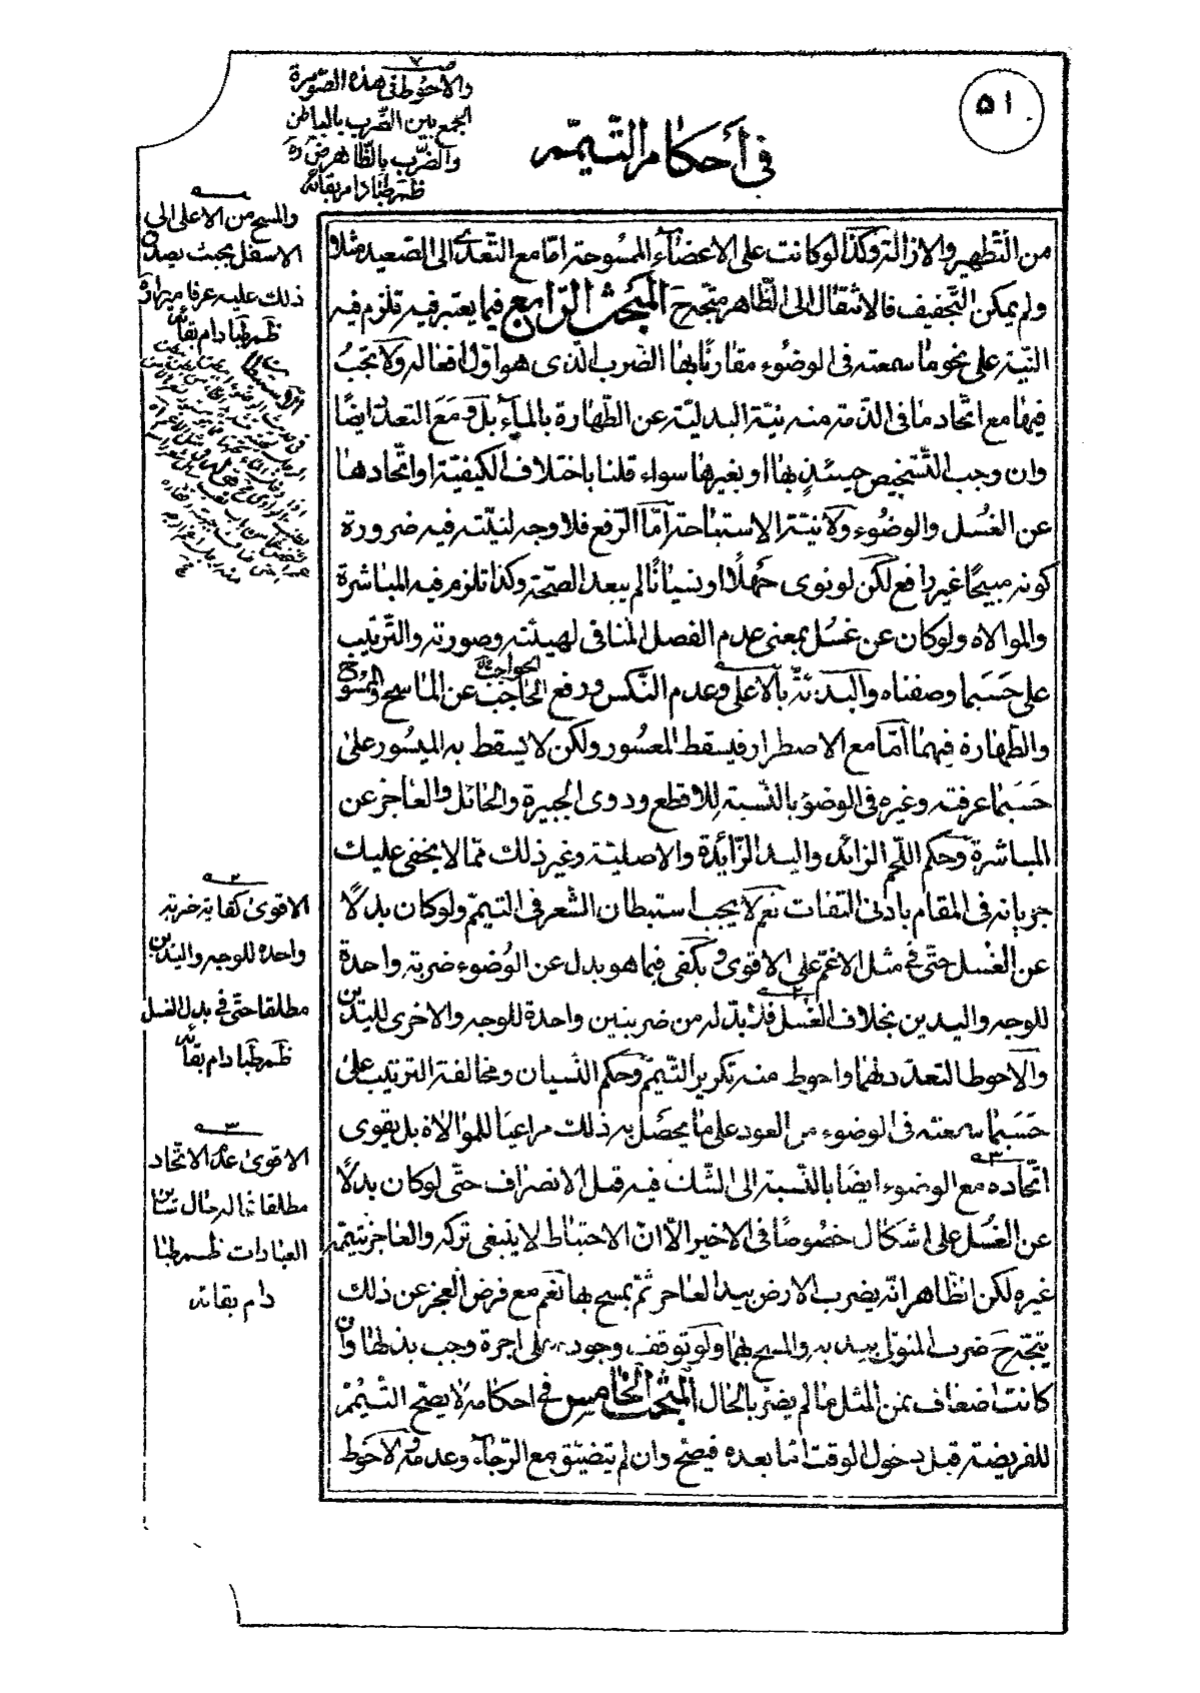 ٥١
في أحكام التيمم
٧
والأحوط في هذه الصورة
الجمع بين الضرب بالباطن
والضرب بالظاهر ض ره
ظم طبا دام بقائه
من التطهير والازالة وكذا لو كانت على الاعضاء الممسوحة امّا مع التعدي الى الصعيد مثلا
ولم يمكن التجفيف فالانتقال الى الظاهر متجه ح المبحث الرابع فيما يعتبر فيه تلزم فيه
النية على نحو ما سمعته في الوضوء مقارنا بها الضرب الذي هو اول افعاله ولا يجب
فيها مع اتحاد ما في الذمة منه نية البدلية عن الطهارة بالماء بل ومع التعدد ايضا
وان وجب التشخيص حينئذ بها او بغيرها سواء قلنا باختلاف الكيفية او اتحادها
عن الغسل والوضوء ولا نية الاستباحة امّا الرفع فلا وجه لنيته فيه ضرورة
كونه مبيحا غير رافع لكن لو نوى جهلا او نسيانا لم يبعد الصحة وكذا تلزم فيه المباشرة
والموالاه ولو كان عن غسل بمعنى عدم الفصل المنافى لهيئته وصورته والترتيب
على حسبما وصفناه والبدئة بالأعلى وعدم النكس ورفع الحاجب عن الماسح والممسوح
الحواجب
والطهارة فيهما امّا مع الاضطرار فيسقط المعسور ولكن لا يسقط به الميسور على
حسبما عرفته وغيره في الوضوء بالنسبة للاقطع وذوى الجبيرة والحائل والعاجز عن
المباشرة وحكم اللحم الزائد واليد الزائدة والاصلية وغير ذلك ممّا لا يخفى عليك
جريانه في المقام بادنى التفات نعم لا يجب استبطان الشعر في التيمم ولو كان بدلا
عن الغسل حتى في مثل الاغم على الاقوى ويكفى فيما هو بدل عن الوضوء ضربة واحدة
للوجه واليدين بخلاف الغسل فلا بدّ له من ضربتين واحدة للوجه والاخرى لليدين
والأحوط التعدد لهما واحوط منه تكرير التيمم وحكم النسيان ومخالفة الترتيب على
حسبما سمعته في الوضوء من العود على ما يحصل به ذلك مراعيا للموالاة بل يقوى
اتحاده مع الوضوء ايضا بالنسبة الى الشك فيه قبل الانصراف حتى لو كان بدلا
عن الغسل على اشكال خصوصا في الاخير الّا انّ الاحتياط لا ينبغى تركه والعاجز ييممه
غيره لكن الظاهر انّه يضرب الارض بيد العاجز ثم يمسح بها نعم مع فرض العجز عن ذلك
يتجه ح ضرب المتولى بيديه والمسح بهما ولو توقف وجوده على اجرة وجب بذلها وان
كانت اضعاف ثمن المثل ما لم يضر بالحال المبحث الخامس في احكامه لا يصحّ التيمّم
للفريضة قبل دخول الوقت امّا بعده فيصحّ وان لم يتضيّق مع الرّجاء وعدمه والاحوط
١
والمسح من الاعلى الى
الاسفل بحيث يصدق
ذلك عليه عرفا
ظم طبا دام بقائه
٢
الاقوى كفاية ضربة
واحدة للوجه واليدين
مطلقا حتى في بدل الغسل
ظم طبا دام بقائه
٣
الاقوى عدم الاتحاد
مطلقا
العبادات ظم طبا
دام بقائه